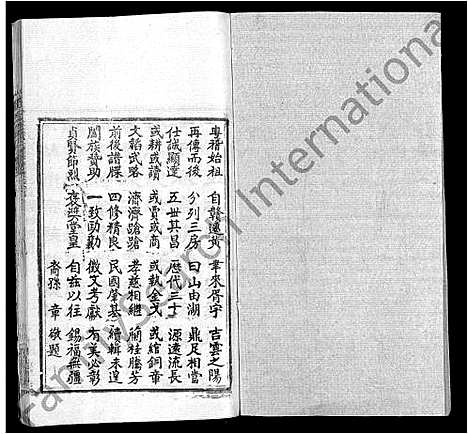 粵稽始祖 自贛遷黃 聿來胥宇 吉雲之陽
再傳而後 分列三房 曰山由湖 鼎足相當
仕誠顯達 五世其昌 歷代三十 源遠流長
或耕或讀 或賈或商 或執金戈 或綰銅章
文韜武略 濟濟蹌蹌 孝慈相繼 蘭桂騰芳
前後譜牒 四修精良 民國肇基 續輯未遑
闔族贊助 一致勛勷 徵文考獻 有美必彰
貞賢節烈 袞冕堂皇 自茲以往 錫福無疆
裔孫 章 敬題
Family Search International